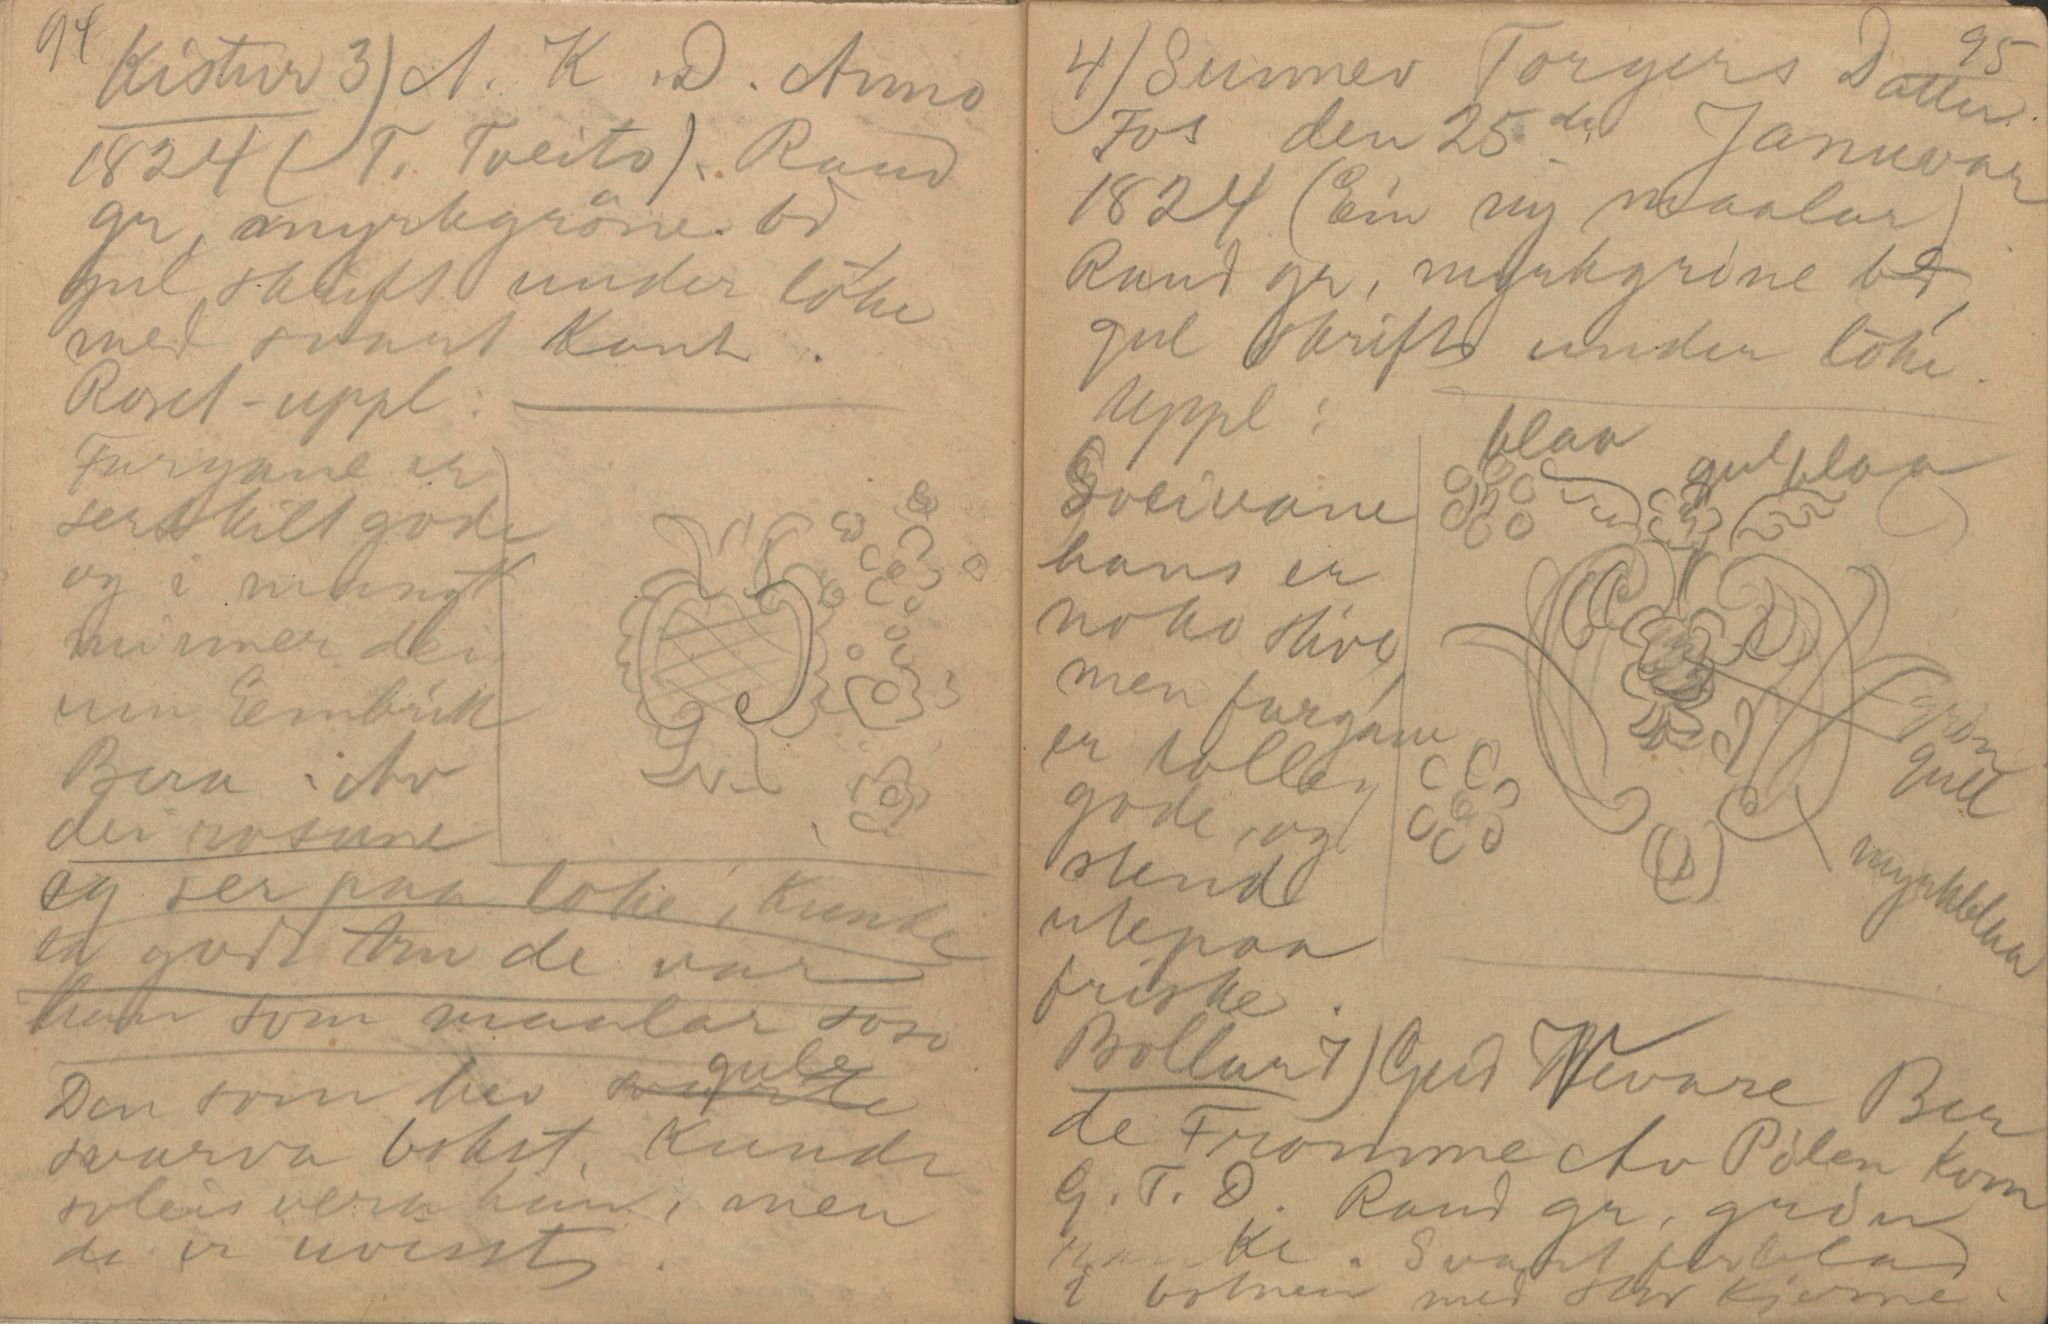 94
Kistur 3) A. K. D. Anno
1824 (T. Tveito). Raud
gr, myrkgröne bd
gul skrift under loke
med svart Kant.
Roset-uppl:
Fargane er
serskilt gode
og i mangt
minner dei
um Embrik
Bera. Av
dei rosune
eg ser paa loke, Kunde
eg godt tru de var
han som maalar soso
Den som hev svarte gule
svarva bokst. Kunde
soleis vera han, men
de er uvisst.
95
4) Sunnev Torgers Datter
Fos den 25de Januvar
1824 (Ein ny maalar)
Raud gr, myrkgröne bd,
gul skrift under loke.
Uppl:
blaa
gul blaa
Sveivane
hans er
noko stive
men fargane
er tolleg
gode, og
stend
utepaa
friske.
grön
gull
myrkblaa
Bollar 1) Gud Wevare Bur
de Fromme Av Pölen Kom
G. T. D. Raud gr, grön
ranke. Svart ferblad
i botnen med stor kjerne.